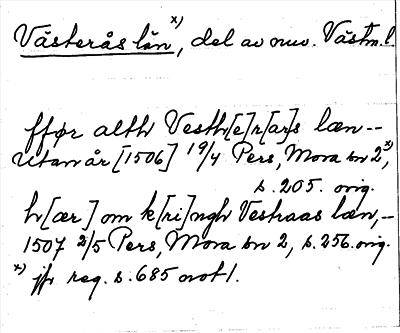 Västerås län x), del av nuv. Västm.l.
ffør alth Vesth[e]r[ar]s læn --
Utan år [1506] 19/4 Pers, Mora bn 2, x)
s. 205. orig.
h[ær] om k[ri]ngh Vestraas læn, --
1507 2/5 Pers, Mora bn 2, s. 256. orig.
x) jfr reg. s. 685 not 1.